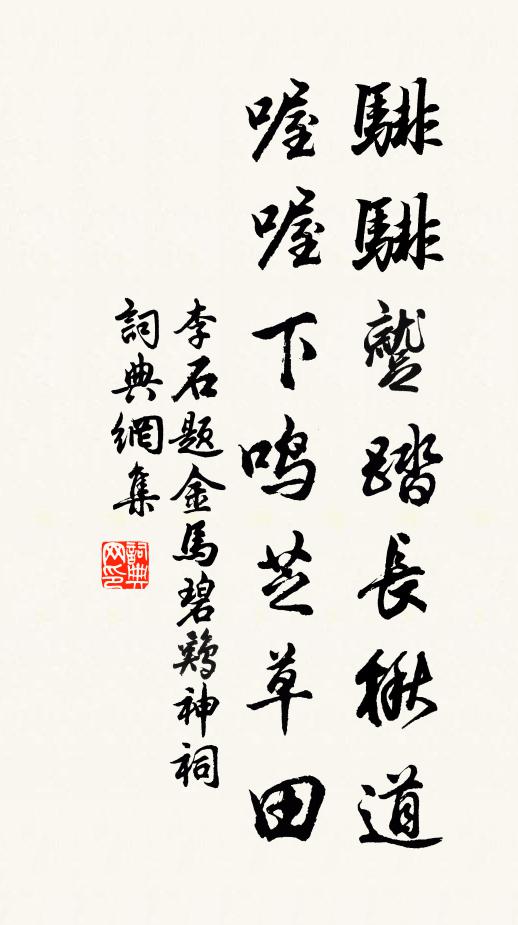 騑騑蹵踏長楸道
喔喔下鳴芝草田
李石题金馬碧鷄神祠
詞典網集
詞典网印